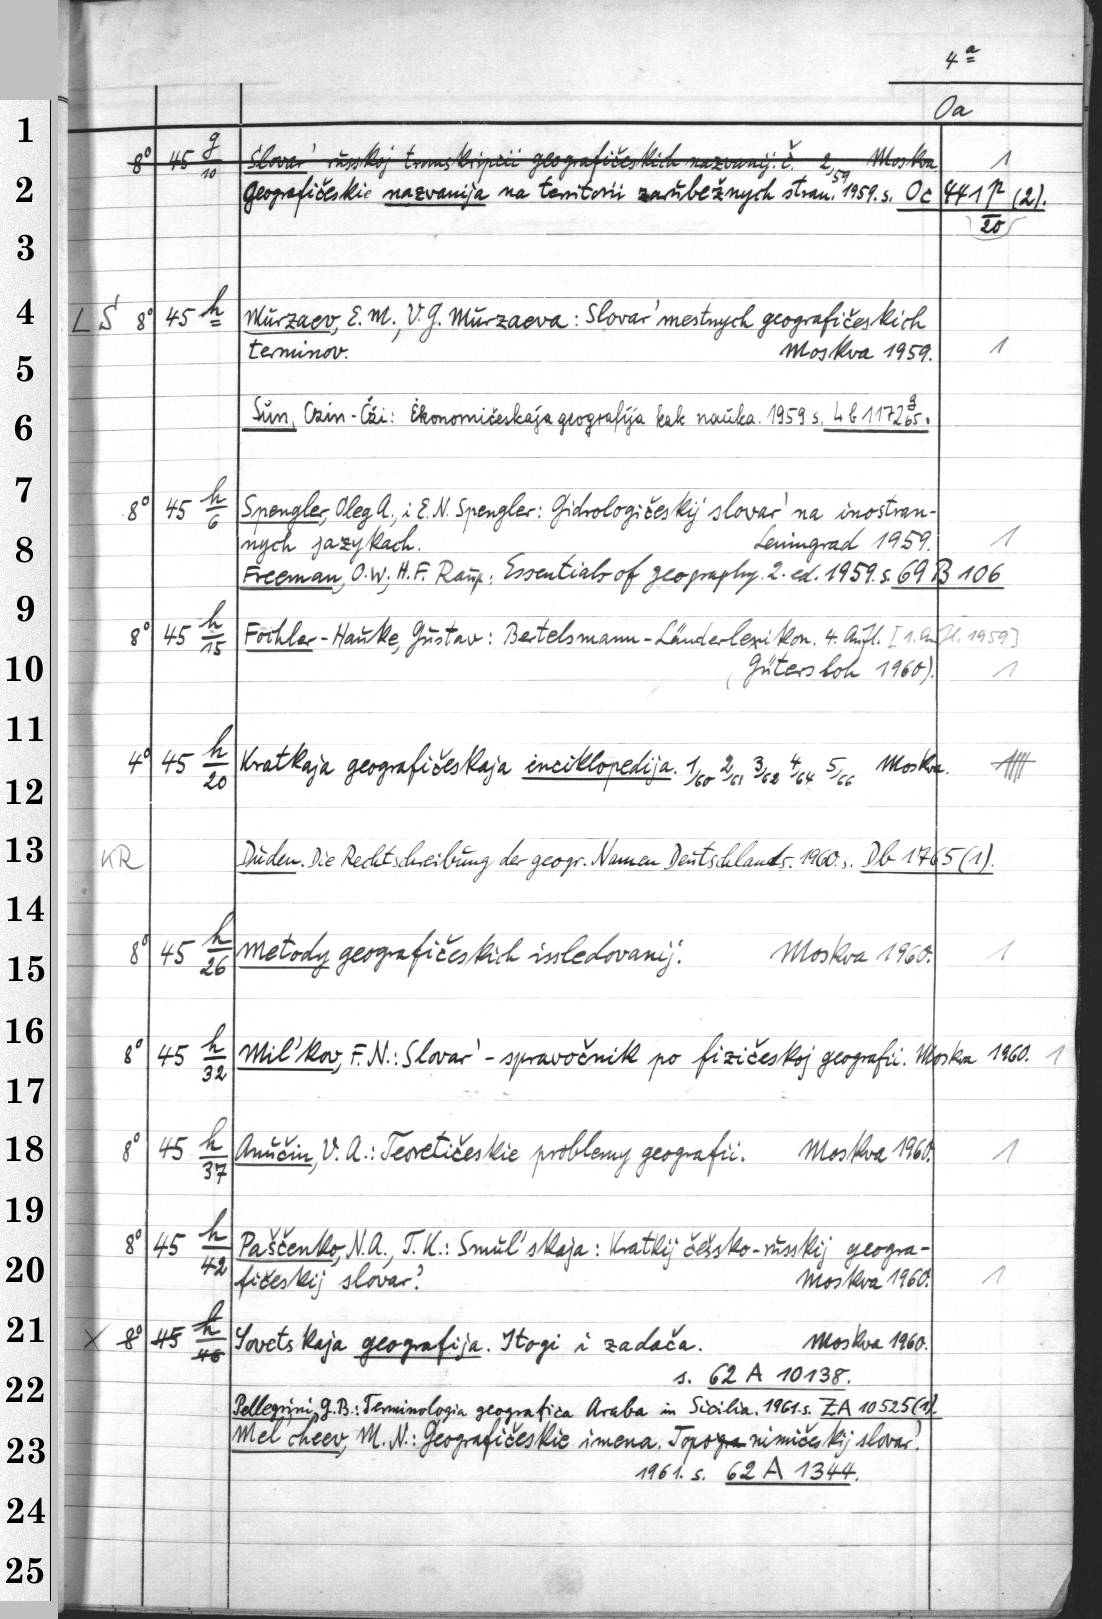 4a
Oa
1
8° 45 g/10 Slovar' russkoj transkripcii geografičeskich nazvanij. č. 2/59 Moskva 1
2
Geografičeskie nazvanija na territorii zarubežnych stran. 1959. s. Oc 441 p/20 (2).
3
4
LS 8° 45 h Murzaev, E. M., V. G. Murzaeva: Slovar' mestnych geografičeskich
terminov. Moskva 1959. 1
5
6
Sun, Czin-Čži: Ėkonomičeskaja geografija kak nauka. 1959 s. Lb 1172 g/65.
7
8° 45 h/6 Spengler, Oleg A., i E. N. Spengler: Gidrologičeskij slovar' na inostran-
8
nych jazykach. Leningrad 1959. 1
Freeman, O. W., H. F. Raup: Essentials of geography. 2. ed. 1959. s. 69 B 106
9
8° 45 h/15 Fochler-Hauke, Gustav: Bertelsmann-Länderlexikon. 4. Aufl. [1. Aufl. 1959]
10
(Gütersloh 1960). 1
11
4° 45 h/20 Kratkaja geografičeskaja enciklopedija. 1/60 2/61 3/62 4/64 5/66 Moskva.
12
13
KR Duden. Die Rechtschreibung der geogr. Namen Deutschlands. 1960. s. Db 1765 (1).
14
8° 45 h/26 Metody geografičeskich issledovanij. Moskva 1960. 1
15
16
8° 45 h/32 Mil'kov, F. N.: Slovar'-spravočnik po fizičeskoj geografii. Moskva 1960. 1
17
18
8° 45 h/37 Anučin, V. A.: Teoretičeskie problemy geografii. Moskva 1960. 1
19
8° 45 h/42 Paščenko, N. A., T. K. Smul'skaja: Kratkij češsko-russkij geogra-
20
fičeskij slovar'. Moskva 1960. 1
21
X 8° 45 h/46 Sovetskaja geografija. Itogi i zadača. Moskva 1960.
s. 62 A 10138.
22
Pellegrini, G. B.: Terminologia geografica Araba in Sicilia. 1961. s. ZA 10525 (1).
23
Mel'cheev, M. N.: Geografičeskie imena. Topogra nimičeskij slovar'.
1961. s. 62 A 1344.
24
25